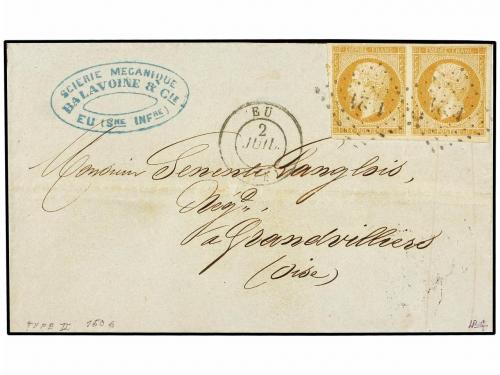 SCIERIE MECANIQUE
BALAVOINE & Cie
EU (Sne INFre)
EMPIRE FRANC
EMPIRE FRANC
EU
2
JUIL.
Monsieur Senente Langlois,
Negt.
à Grandvilliers
(Oise)
TYPE II 150 €